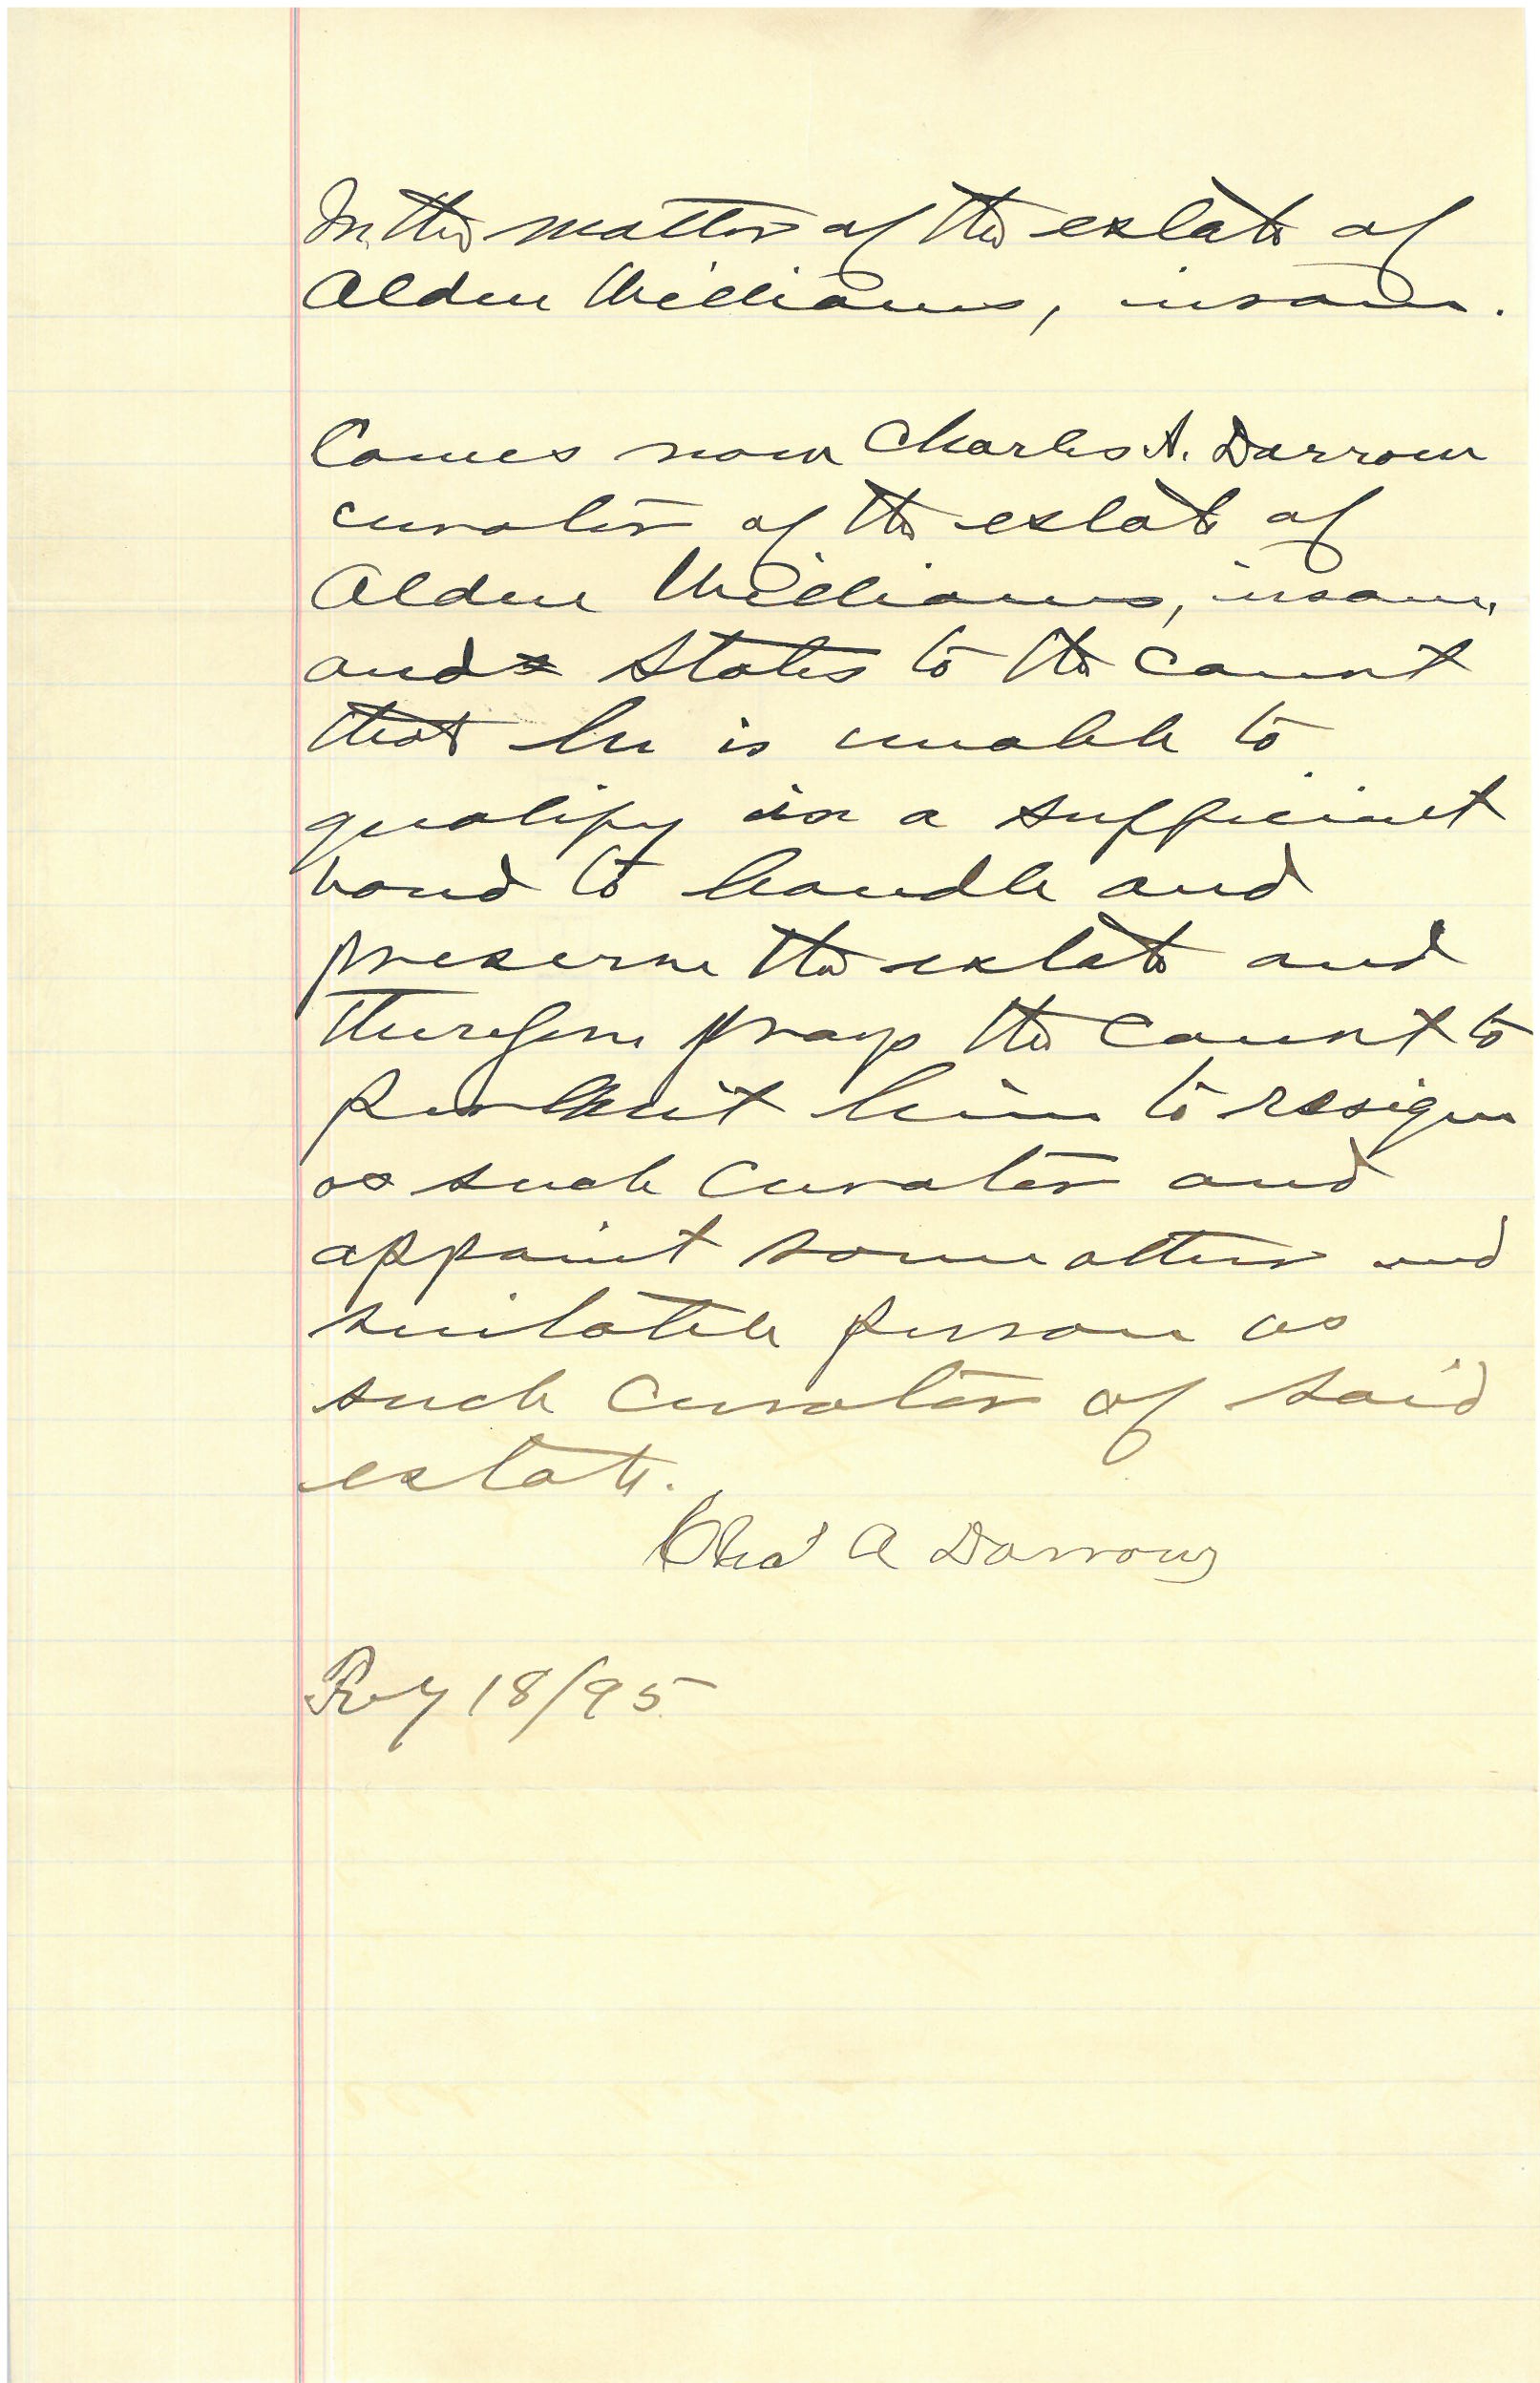 In the matter of the estate of
Alden Williams, insane.
Comes now Charles A. Darrow
curator of the estate of
Alden Williams, insane,
and states to the Court
that he is unable to
qualify in a sufficient
bond to handle and
preserve the estate and
therefore prays the Court to
permit him to resign
as such curator and
appoint some other and
suitable person as
such curator of said
estate.
Chas A Darrow
18/95